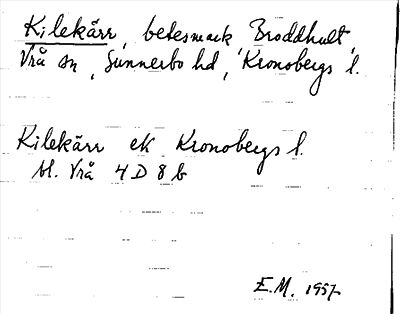 Kilekärr, betesmark Broddhult,
Vrå sn, Sunnerbo hd, Kronobergs l.
Kilekärr ek Kronobergs l.
bl. Vrå 4 D 8 b
E.M. 1957